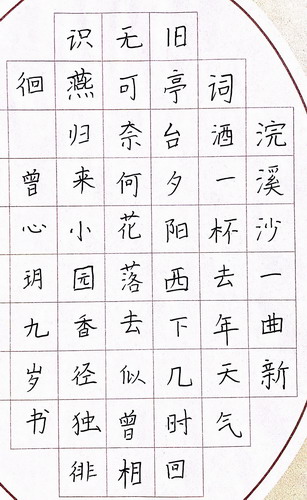 浣溪沙一曲新
词酒一杯去年天气
旧亭台夕阳西下几时回
无可奈何花落去似曾相
识燕归来小园香径独徘
徊 曾心玥九岁书